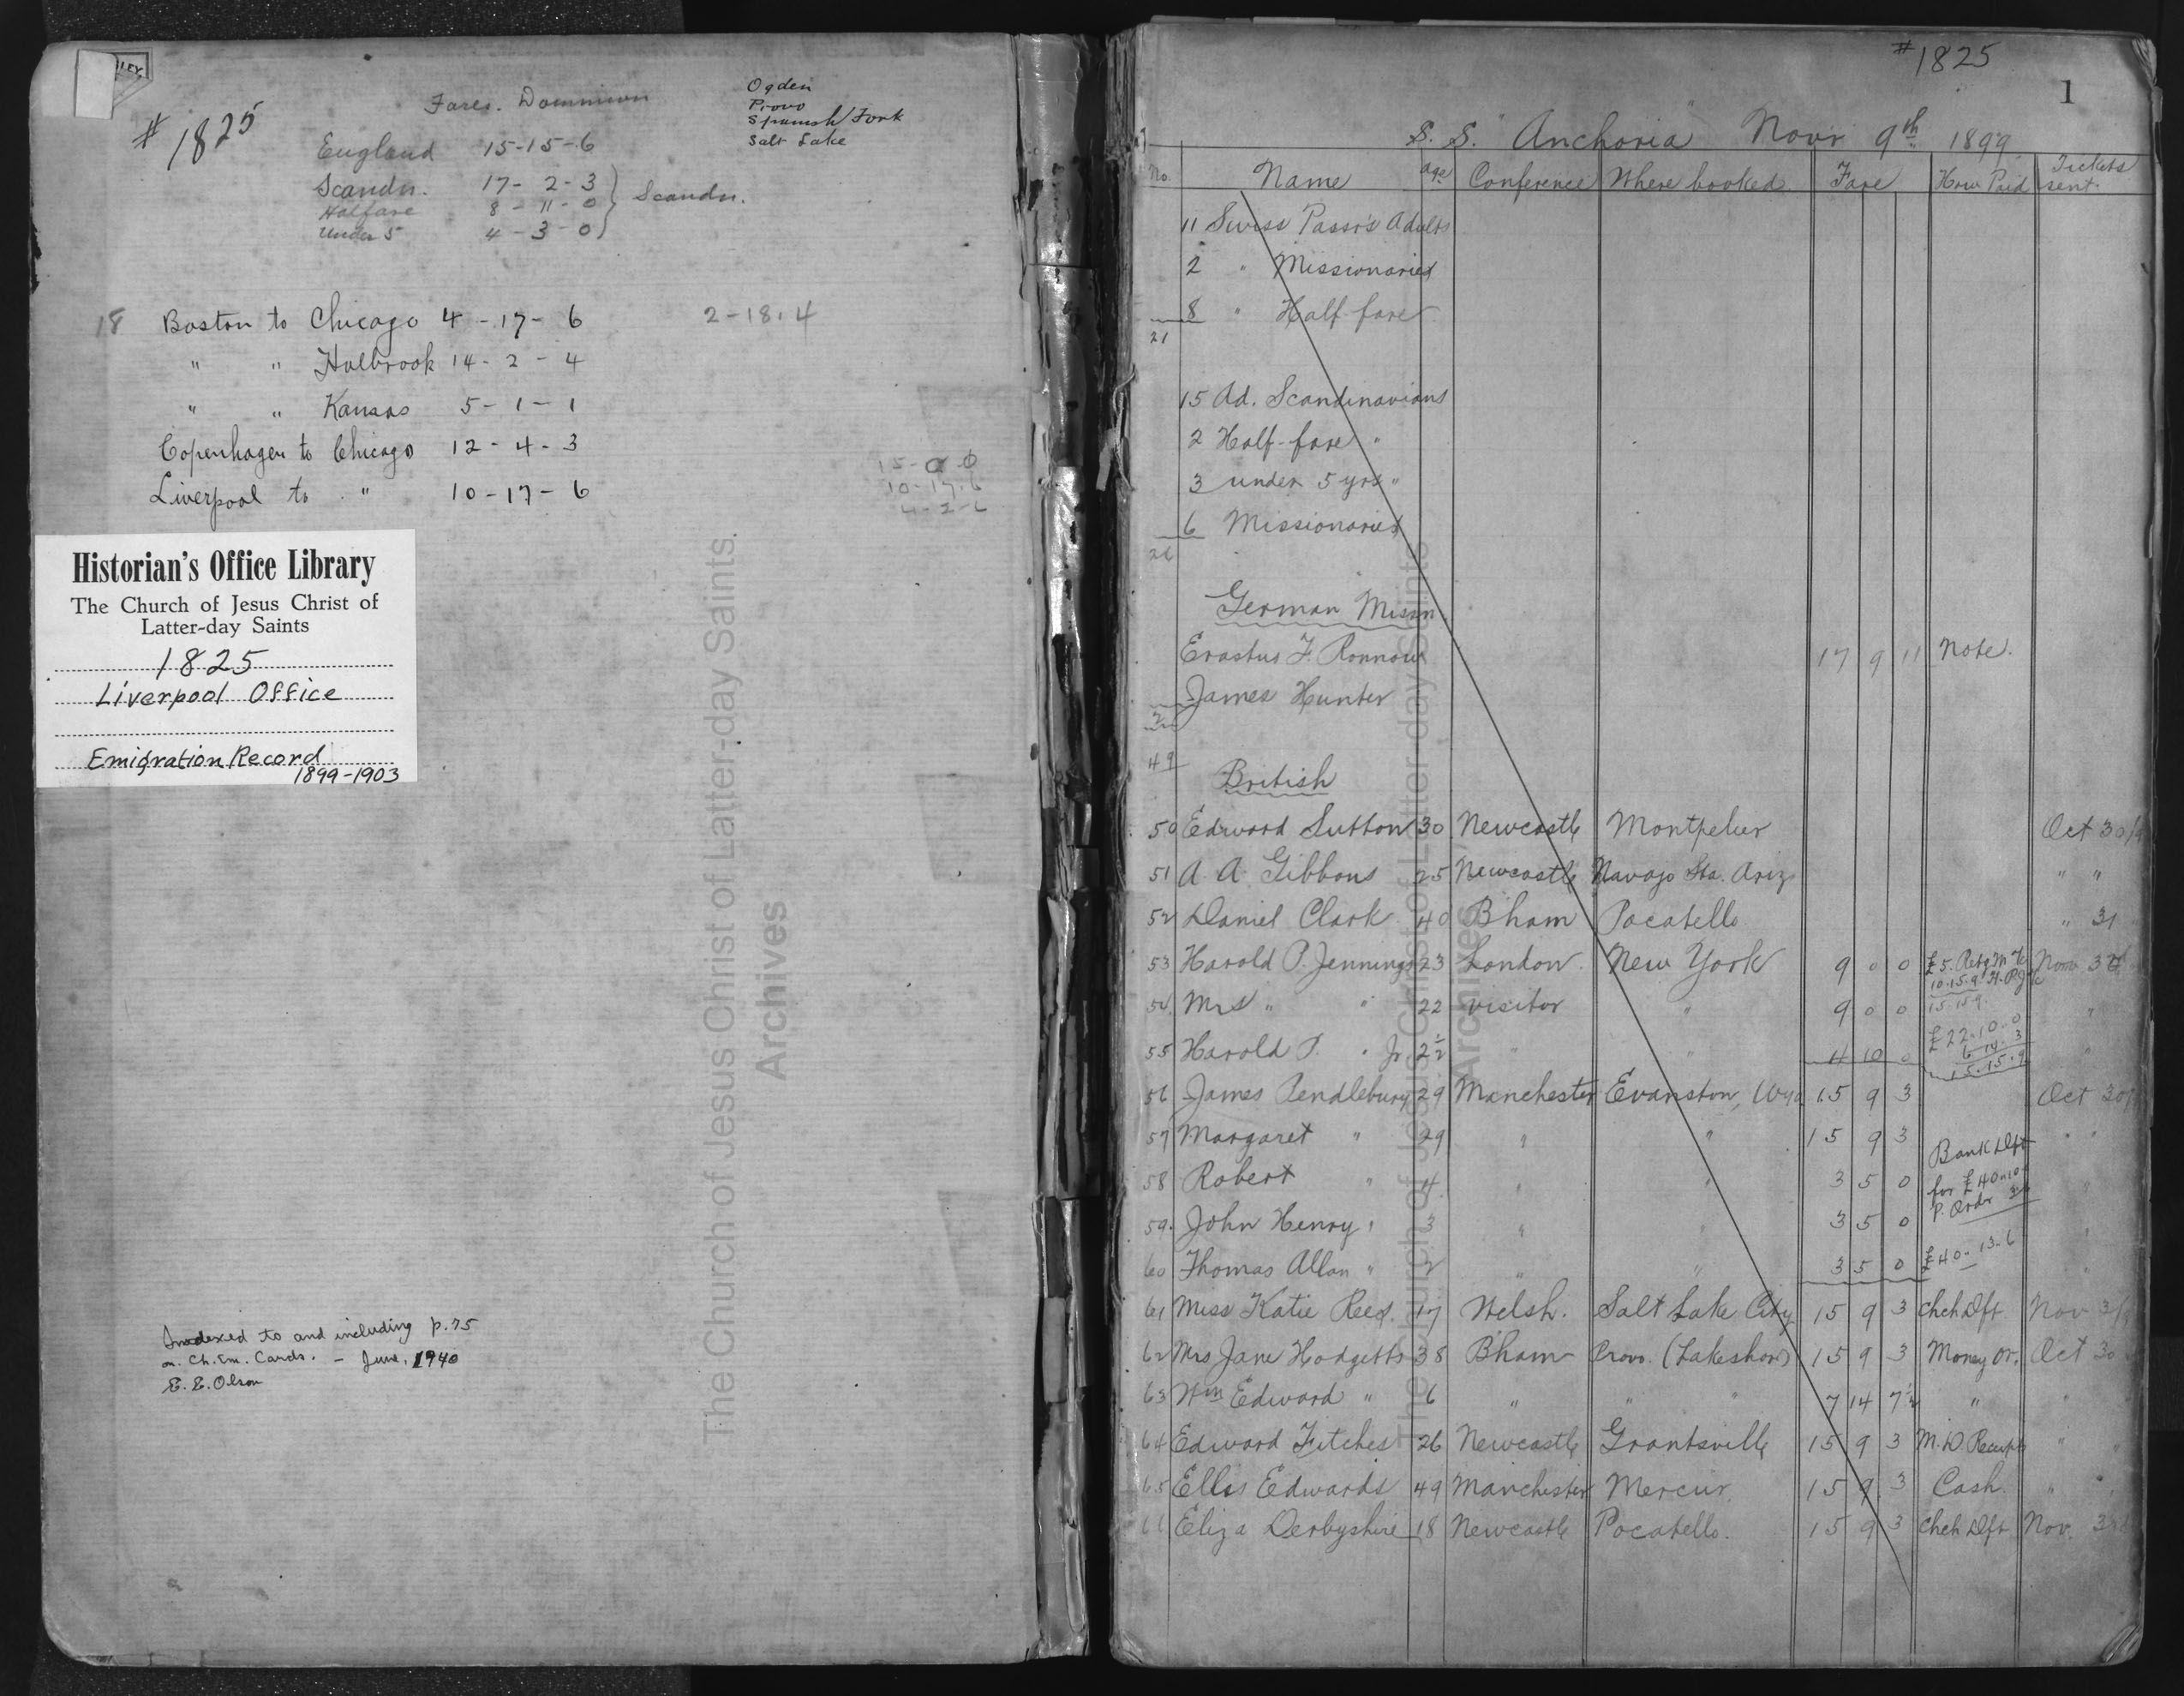 LEY
# 1825
Fares. Dominion
England 15-15-6
Scandn. 17-2-3
Halfare 8-11-0 Scandn.
Under 5 4-3-0
Ogden
Provo
Spanish Fork
Salt Lake
18 Boston to Chicago 4-17-6 2-18.4
" " Holbrook 14-2-4
" " Kansas 5-1-1
Copenhagen to Chicago 12-4-3
Liverpool to " 10-17-6
15-0-0
10-17-6
4-2-6
Historian's Office Library
The Church of Jesus Christ of
Latter-day Saints
1825
Liverpool Office
Emigration Record
1899-1903
Indexed to and including p. 75
on Ch. Em. Cards. - June, 1940
E. E. Olson
The Church of Jesus Christ of Latter-day Saints.
Archives
# 1825
1
S. S. "Anchoria" Novr 9th 1899
No. Name age Conference Where booked Fare How Paid Tickets sent.
11 Swiss Passr's Adults
2 " Missionaries
8 " Half fare
21
15 Ad. Scandinavians
2 Half-fare "
3 under 5 yrs "
6 Missionaries
26
German Missn
Erastus F. Ronnow 17 9 11 Note.
James Hunter
2
49
British
50 Edward Sutton 30 Newcastle Montpelier Oct 30/9
51 A. A. Gibbons 25 Newcastle Navajo Sta. Ariz " "
52 Daniel Clark 40 B'ham Pocatello " 31
53 Harold P. Jennings 23 London New York 9 0 0 Nov.
10.15.9
54 Mrs " " 22 visitor " 9 0 0 15.15.9 "
£22.10.0
55 Harold P. " Jr 2½ " " 4 10 0 6.14.3 "
15.15.9
56 James Pendlebury 29 Manchester Evanston, Wyo 15 9 3 Oct 30/
57 Margaret " 29 " " 15 9 3 Bank Dft " "
58 Robert " 4 " " 3 5 0 for £40-10- "
P. Order
59. John Henry " 3 " " 3 5 0 "
60 Thomas Allan " 2 " " 3 5 0 £40-13-6 "
61 Miss Katie Reed. 17 Welsh. Salt Lake City 15 9 3 Chck Dft Nov 3/9
62 Mrs Jane Hodgetts 38 B'ham Provo. (Lakeshore) 15 9 3 Money Or. Oct 30
63 Wm Edward " 6 " " " 7 14 7½ " "
64 Edward Fitches 26 Newcastle Grantsville 15 9 3 M.O. Receipts " "
65 Ellis Edwards 49 Manchester Mercur 15 9 3 Cash " "
66 Eliza Derbyshire 18 Newcastle Pocatello. 15 9 3 Chck Dft Nov. 3rd
The Church of Jesus Christ of Latter-day Saints
Archives